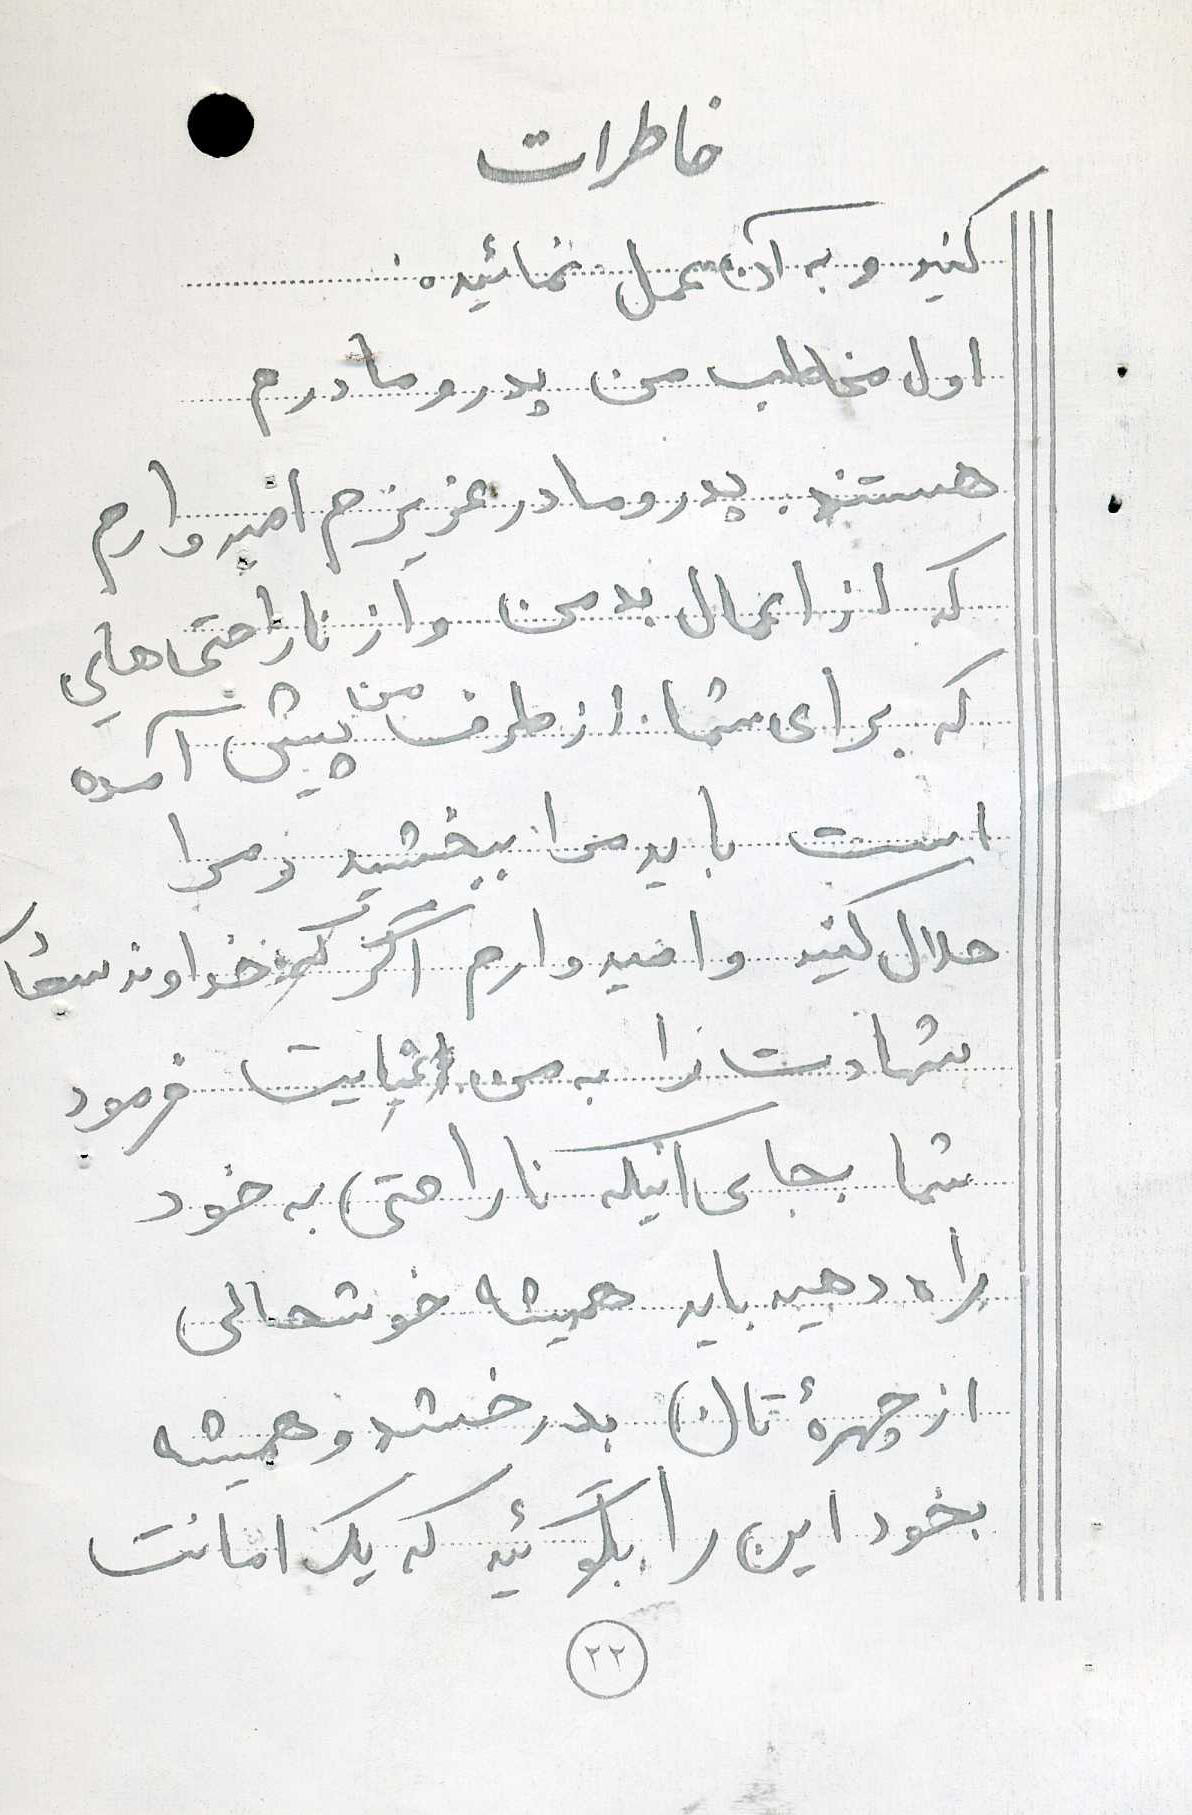 خاطرات
کنید و به آن عمل نمائید.
اول مخاطب من پدر و مادرم
هستند. پدر و مادر عزیزم امیدوارم
که از اعمال بد من و از ناراحتی‌هایی
که برای شما از طرف من پیش آمده
است باید مرا ببخشید و مرا
حلال کنید و امیدوارم اگر که خداوند
شهادت را به من عنایت فرمود
شما بجای اینکه ناراحتی به خود
راه دهید باید همیشه خوشحالی
از چهرهٔ تان بدرخشد و همیشه
بخود این را بگوئید که یک امانت
۲۲